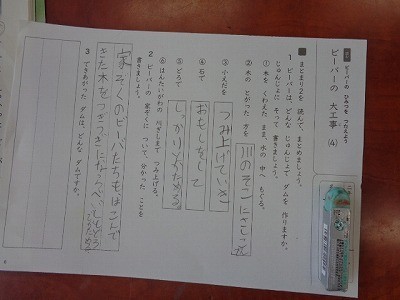 ビーバーの ひみつを つたえよう
ビーバーの 大工事 (4)
まとまり2を 読んで、まとめましょう。
1 ビーバーは、どんな じゅんじょで ダムを 作りますか。
じゅんじょに そって 書きましょう。
① 木を くわえた まま、水の 中へ もぐる。
② 木の とがった 方を 川のそこにさしこむ
③ 小えだを つみ上げていき
④ 石で おもしをして
⑤ どろで しっかりかためる
⑥ はんたいがわの 川ぎしまで つみ上げる。
2 ビーバーの 家ぞくに ついて、分かった ことを
書きましょう。
家ぞくのビーバーたちも、はこんで
きた木をつぎつぎに
3 できあがった ダムは、どんな ダムですか。